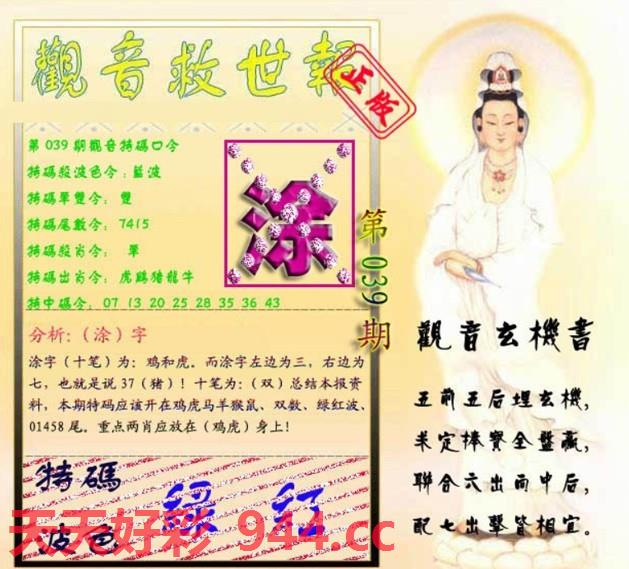 觀音救世報
正版
第039期觀音特碼口令
特碼殺波色令:藍波
特碼單雙令: 雙
特碼尾數令: 7415
特碼殺肖令: 單
特碼出肖令: 虎鷄猪龍牛
特中碼令: 07 13 20 25 28 35 36 43
涂
第039期
分析:（涂）字
涂字（十笔）为：鸡和虎。而涂字左边为三，右边为
七，也就是说37（猪）！十笔为：（双）总结本报资
料，本期特码应该开在鸡虎马羊猴鼠、双数、绿红波、
01458尾。重点两肖应放在（鸡虎）身上！
觀音玄機書
五前五后埋玄機，
求定棒寳全盤贏，
聯合六出面中后，
配七出擊皆相宜。
特碼
波色
綠 紅
天天好彩 944.cc